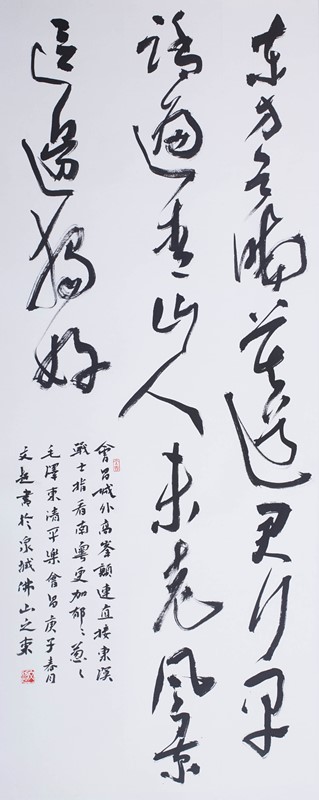 東方欲曉莫道君行早
踏遍青山人未老風景
這邊獨好
會昌城外高峯顛連直接東溟
戰士指看南粵更加郁々蔥々
毛澤東清平樂會昌庚子春月
文超書於泉城佛山之東